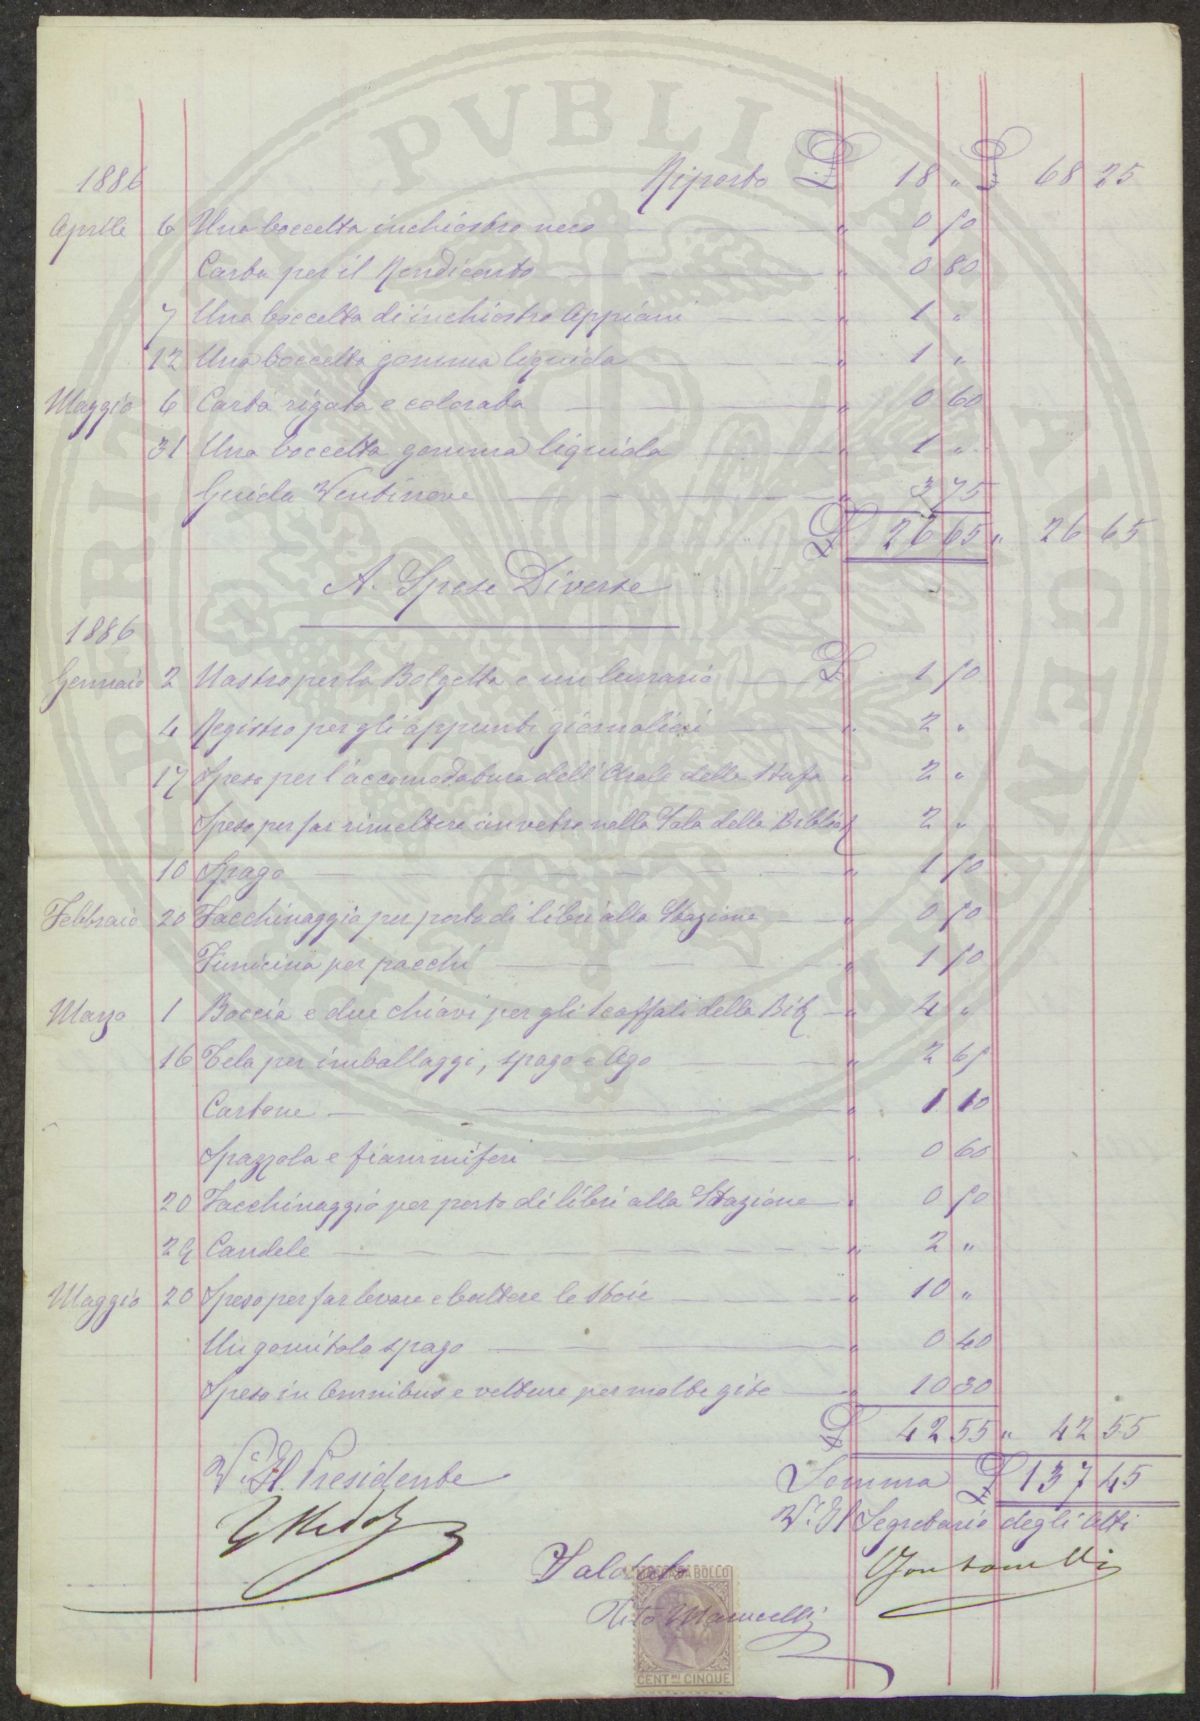 1886 Riporto £ 18 " £ 68 25
Aprile 6 Una boccetta inchiostro nero " 0 50
Carta per il Rendiconto " 0 80
7 Una boccetta di inchiostro Appiani " 1 "
12 Una boccetta gomma liquida " 1 "
Maggio 6 Carta rigata e colorata " 0 60
31 Una boccetta gomma liquida " 1 "
Guida Ventinove " 3 75
£ 26 65 " 26 65
A. Spese Diverse
1886
Gennaio 2 Nastro per la Bolgetta e un lunario £ 1 50
4 Registro per gli appunti giornalieri " 2 "
17 Spesa per l'accomodatura dell' Orale della Stufa " 2 "
Spesa per far rimettere un vetro nella Sala della Bibliot 2 "
10 Spago " 1 50
Febbraio 20 Facchinaggio per porto di libri alla Stazione " 0 50
Funicina per pacchi " 1 50
Marzo 1 Boccia e due chiavi per gli scaffali della Bib " 4 "
16 Tela per imballaggi, spago e Ago " 2 65
Cartone " 1 10
Spazzola e fiammiferi " 0 60
20 Facchinaggio per porto di libri alla Stazione " 0 50
Candele " 2 "
Maggio 20 Spesa per far levare e battere le stoie " 10 "
Un gomitolo spago " 0 40
Spesa in Omnibus e vetture per molte gite " 10 30
£ 42 55 " 42 55
V.° Il Presidente Somma £ 137 45
V.° Il Segretario degli Atti
Saldato
MARCA DA BOLLO
Tito Mannelli
CENT.MI CINQUE
PVBLICAE